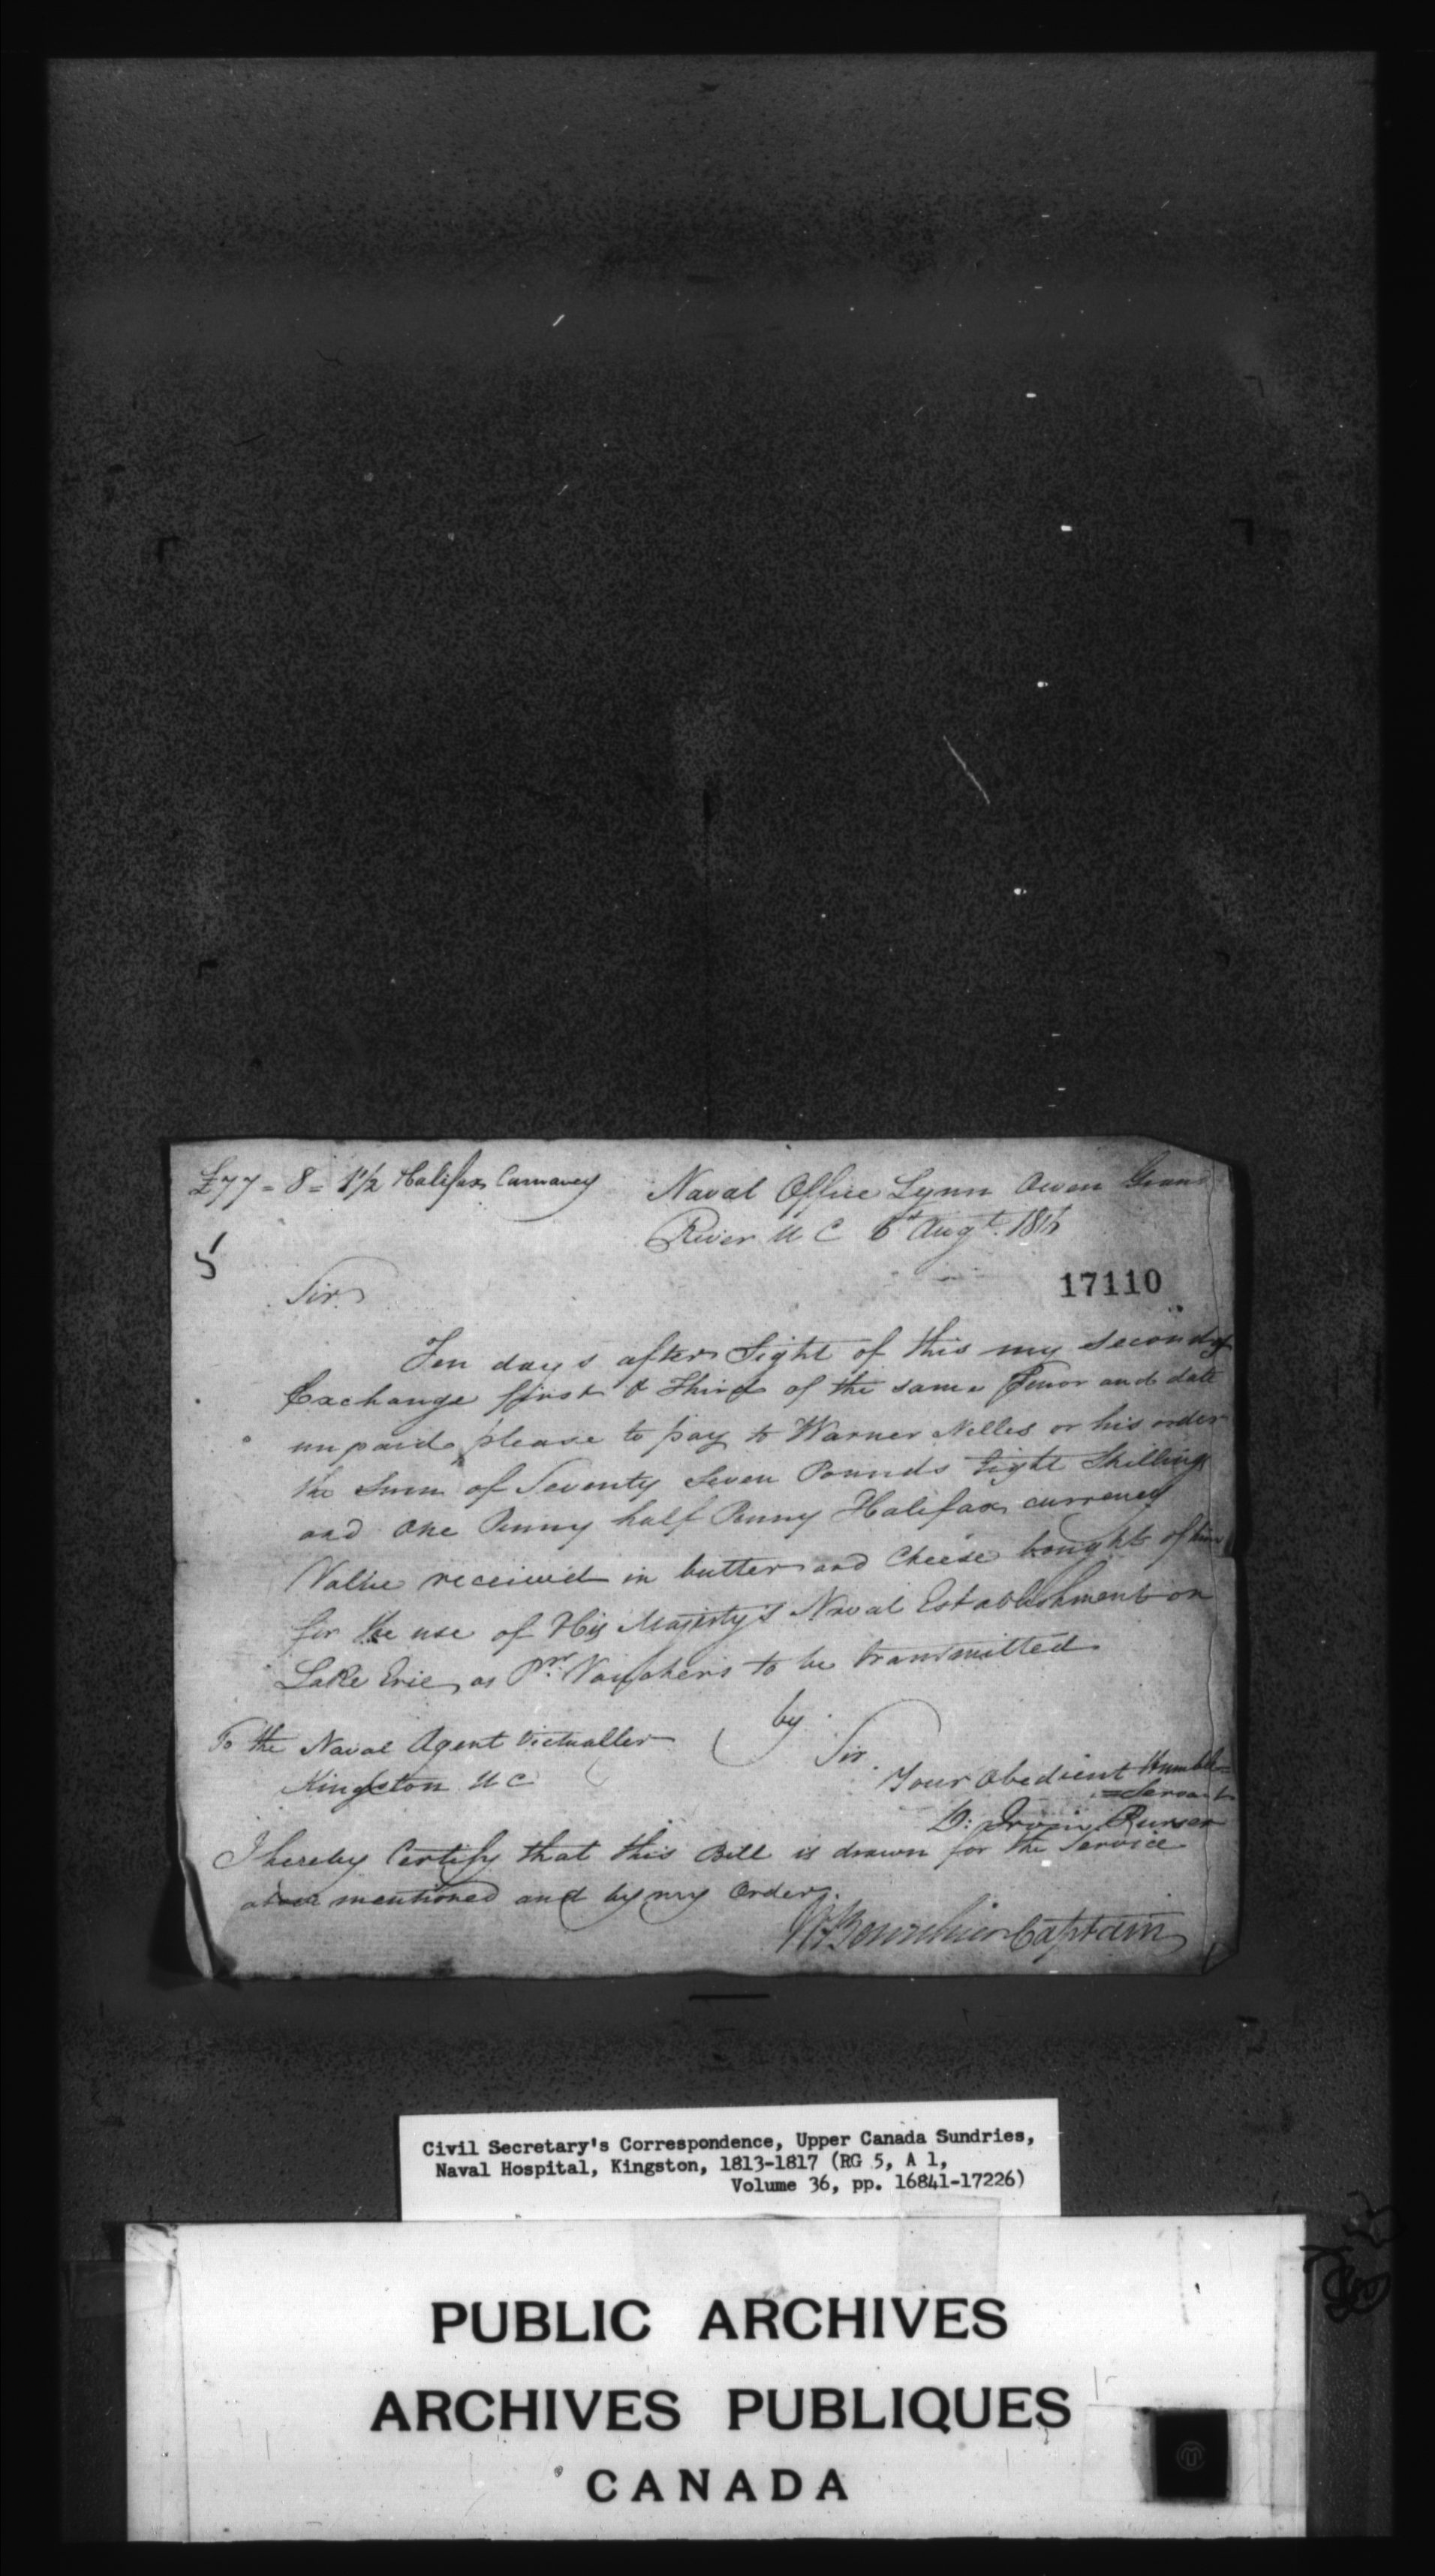 £77 = 8 = 1½ Halifax Currancy
Naval Office Lynn Owen Grand
River U C 6th Augt. 1816
5
Sir
17110
Ten days after Sight of this my second of
Exchange first & Third of the same Tenor and date
unpaid, please to pay to Warner Nelles or his order
the Sum of Seventy Seven Pounds Eight Shillings
and One Penny half Penny Halifax currency
Value received in butter and Cheese bought of him
for the use of His Majesty's Naval Establishment on
Lake Erie, as Pr. Vouchers to be transmitted
by
Sir.
To the Naval Agent Victualler
Kingston U C
Your Obedient Humble
Servant
Purser
I hereby Certify that this Bill is drawn for the Service
above mentioned and by my Order.
Bourchier Captain
Civil Secretary's Correspondence, Upper Canada Sundries,
Naval Hospital, Kingston, 1813-1817 (RG 5, A 1,
Volume 36, pp. 16841-17226)
PUBLIC ARCHIVES
ARCHIVES PUBLIQUES
CANADA